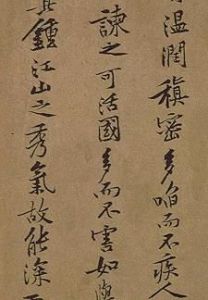 温潤稹密多啗而不疾人
諫之可活國多而不害如舉
其鍾江山之秀氣故能深